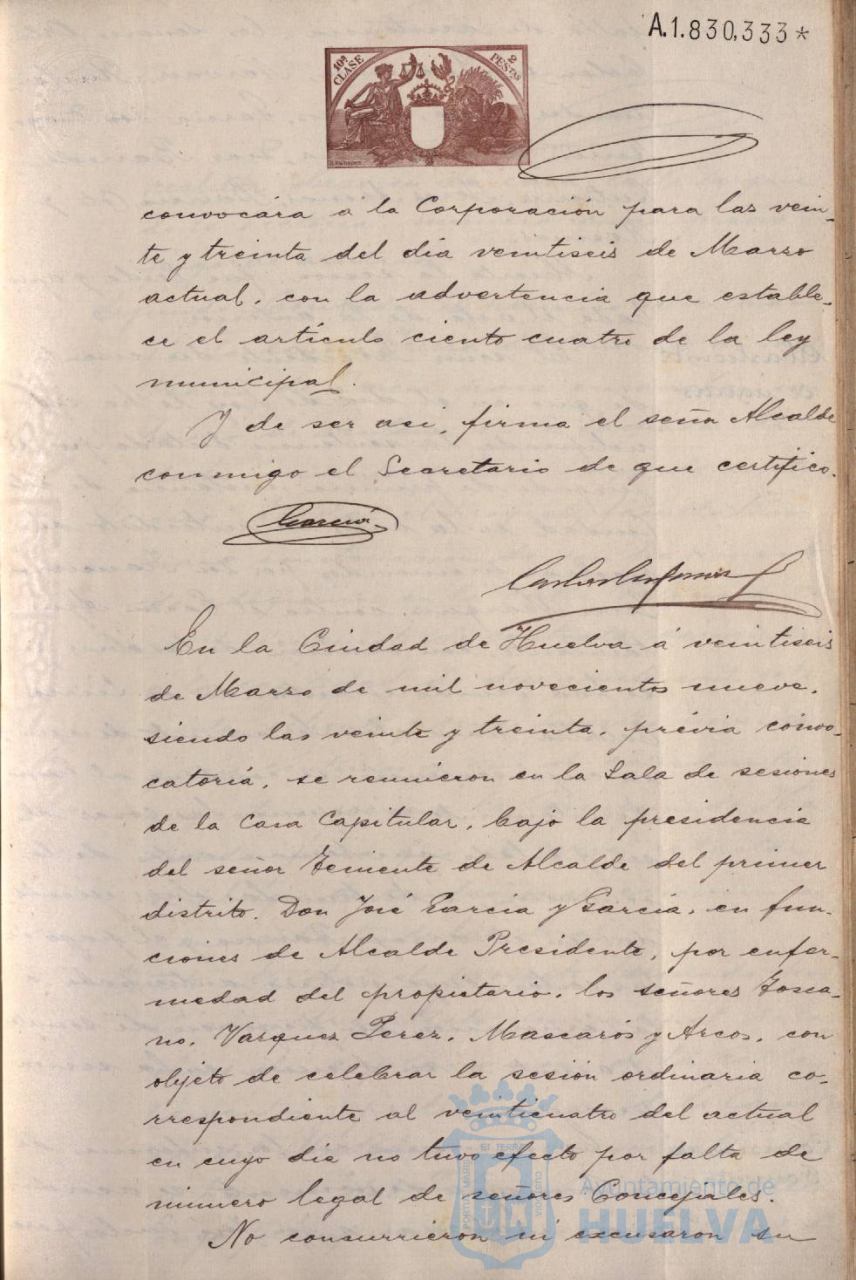 A.1.830,333*
10ª CLASE
2 PESETAS
convocára a la Corporación para las vein-
te y treinta del dia veintiseis de Marzo
actual, con la advertencia que estable-
ce el artículo ciento cuatro de la ley
municipal.
Y de ser asi, firma el señor Alcalde
conmigo el Secretario de que certifico.
Garcia
En la Ciudad de Huelva á veintiseis
de Marzo de mil novecientos nueve,
siendo las veinte y treinta, prévia convo-
catoria, se reunieron en la Sala de sesiones
de la Casa Capitular, bajo la presidencia
del señor Teniente de Alcalde del primer
distrito, Don José Garcia y Garcia, en fun-
ciones de Alcalde Presidente, por enfer-
medad del propietario, los señores Tosca-
no, Vazquez Perez, Mascarós y Arcos, con
objeto de celebrar la sesión ordinaria co-
rrespondiente al veinticuatro del actual
en cuyo dia no tuvo efecto por falta de
número legal de señores Concejales.
No concurrieron ni excusaron su
Ayuntamiento de
HUELVA